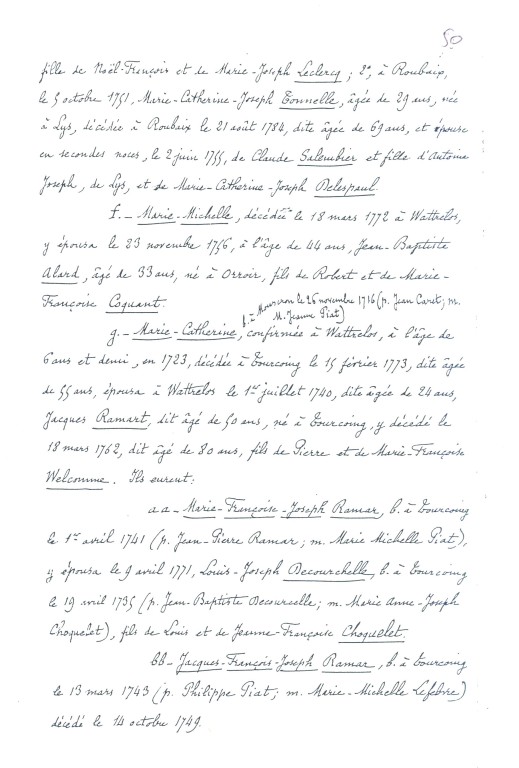 50
fille de Noël-François et de Marie-Joseph Leclercq ; 2°, à Roubaix,
le 5 octobre 1751, Marie-Catherine-Joseph Tonnelle, âgée de 29 ans, née
à Lys, décédée à Roubaix le 21 août 1784, dite âgée de 69 ans, et épouse
en secondes noces, le 2 juin 1755, de Claude Salembier et fille d'Antoine
Joseph, de Lys, et de Marie-Catherine-Joseph Delespaul.
f. - Marie-Michelle, décédée le 18 mars 1772 à Wattrelos,
y épousa le 23 novembre 1756, à l'âge de 44 ans, Jean-Baptiste
Alard, âgé de 33 ans, né à Orroir, fils de Robert et de Marie-
Françoise Coquant.
b. à Mouscron le 26 novembre 1716 (p. Jean Caret ; m.
M. Jeanne Piat)
g. - Marie-Catherine, confirmée à Wattrelos, à l'âge de
6 ans et demi, en 1723, décédée à Tourcoing le 15 février 1773, dite âgée
de 55 ans, épousa à Wattrelos le 1er juillet 1740, dite âgée de 24 ans,
Jacques Ramart, dit âgé de 50 ans, né à Tourcoing, y décédé le
18 mars 1762, dit âgé de 80 ans, fils de Pierre et de Marie-Françoise
Welcomme. Ils eurent :
aa - Marie-Françoise-Joseph Ramar, b. à Tourcoing
le 1er avril 1741 (p. Jean-Pierre Ramar ; m. Marie Michelle Piat),
y épousa le 9 avril 1771, Louis-Joseph Decourchelle, b. à Tourcoing
le 19 avril 1735 (p. Jean-Baptiste Decourcelle ; m. Marie Anne-Joseph
Choquelet), fils de Louis et de Jeanne-Françoise Choquelet.
bb - Jacques-François-Joseph Ramar, b. à Tourcoing
le 13 mars 1743 (p. Philippe Piat ; m. Marie-Michelle Lefebvre)
décédé le 14 octobre 1749.